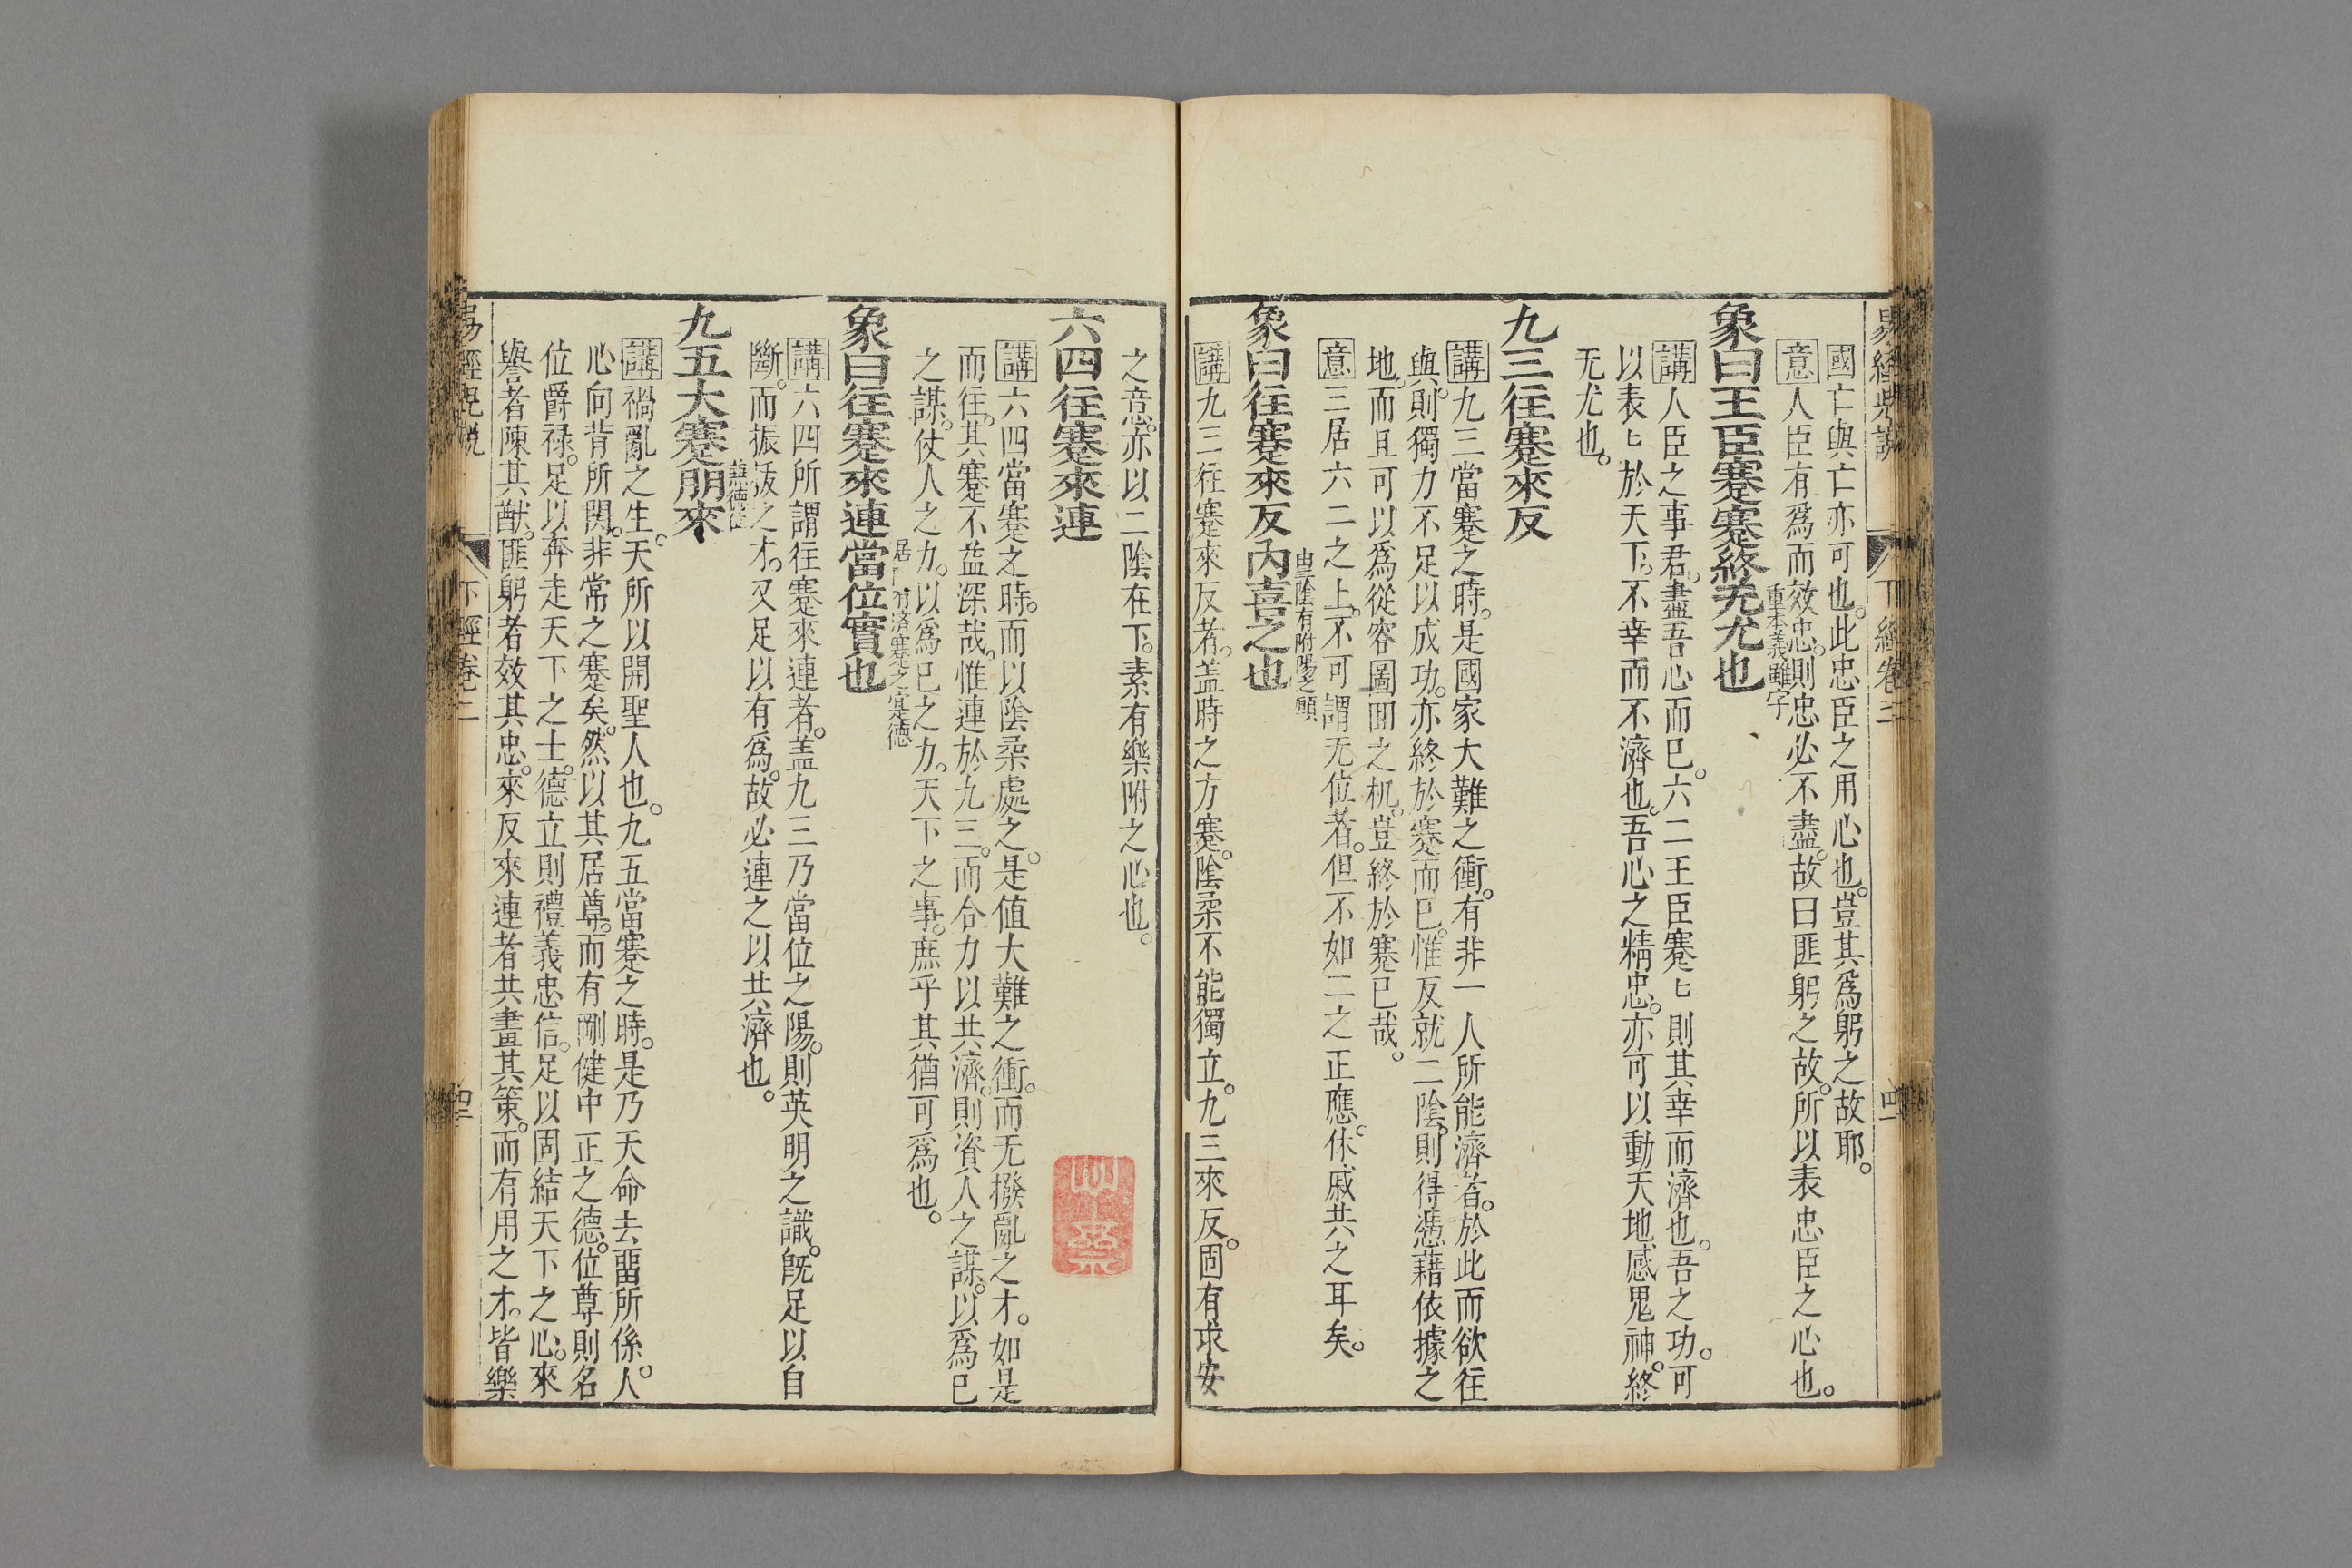 易經
下經卷二
國亡與亡亦可也。此忠臣之用心也。豈其爲躬之故耶。
意人臣有爲而效忠。則忠必不盡。故曰匪躬之故。所以表忠臣之心也。
重本義雖字
象曰王臣蹇蹇終无尤也
講人臣之事君。盡吾心而已。六二王臣蹇〻則其幸而濟也。吾之功。可
以表〻於天下。不幸而不濟也。吾心之精忠。亦可以動天地感鬼神。終
无尤也。
九三往蹇來反
講九三當蹇之時。是國家大難之衝。有非一人所能濟者。於此而欲往
與。則獨力不足以成功。亦終於蹇而已。惟反就二陰。則得憑藉依據之
地。而且可以爲從容圖囬之机。豈終於蹇已哉。
意三居六二之上。不可謂无位者。但不如二之正應。休戚共之耳矣。
陰有附陽之願
象曰往蹇來反內喜之也
講九三往蹇來反者。盖時之方蹇。陰柔不能獨立。九三來反。固有求安
之意。亦以二陰在下。素有樂附之心也。
六四往蹇來連
講六四當蹇之時。而以陰柔處之。是值大難之衝。而无撥亂之才。如是
而往。其蹇不益深哉。惟連於九三。而合力以共濟。則資人之謀。以爲已
之謀。仗人之力。以爲已之力。天下之事。庶乎其猶可爲也。
有済蹇之寔德
象曰往蹇來連當位實也
講六四所謂往蹇來連者。盖九三乃當位之陽。則英明之識。旣足以自
斷。而振拔之才。又足以有爲。故必連之以共濟也。
九五大蹇朋來
講禍亂之生。天所以開聖人也。九五當蹇之時。是乃天命去畱所係。人
心向背所関。非常之蹇矣。然以其居尊。而有剛健中正之德。位尊則名
位爵祿。足以奔走天下之士。德立則禮義忠信。足以固結天下之心。來
譽者陳其猷。匪躬者效其忠。來反來連者共畫其策。而有用之才。皆樂
下經卷二